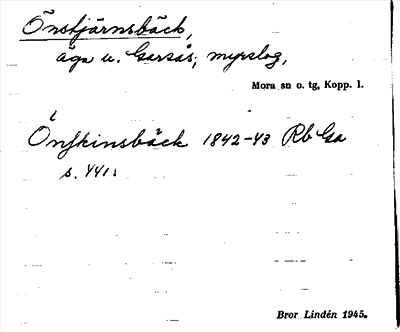 Önstjärnsbäck,
äga u. Garsås; myrslog,
Mora sn o. tg, Kopp. l.
Önskinsbäck 1842-43 Rb Ga
s. 441.
Bror Lindén 1945.